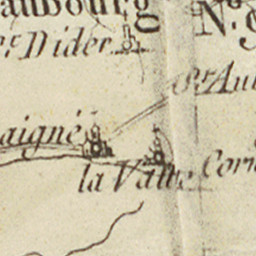 aubourg N.o
St. Dider
St. Au
aigné
la Vatte Corn